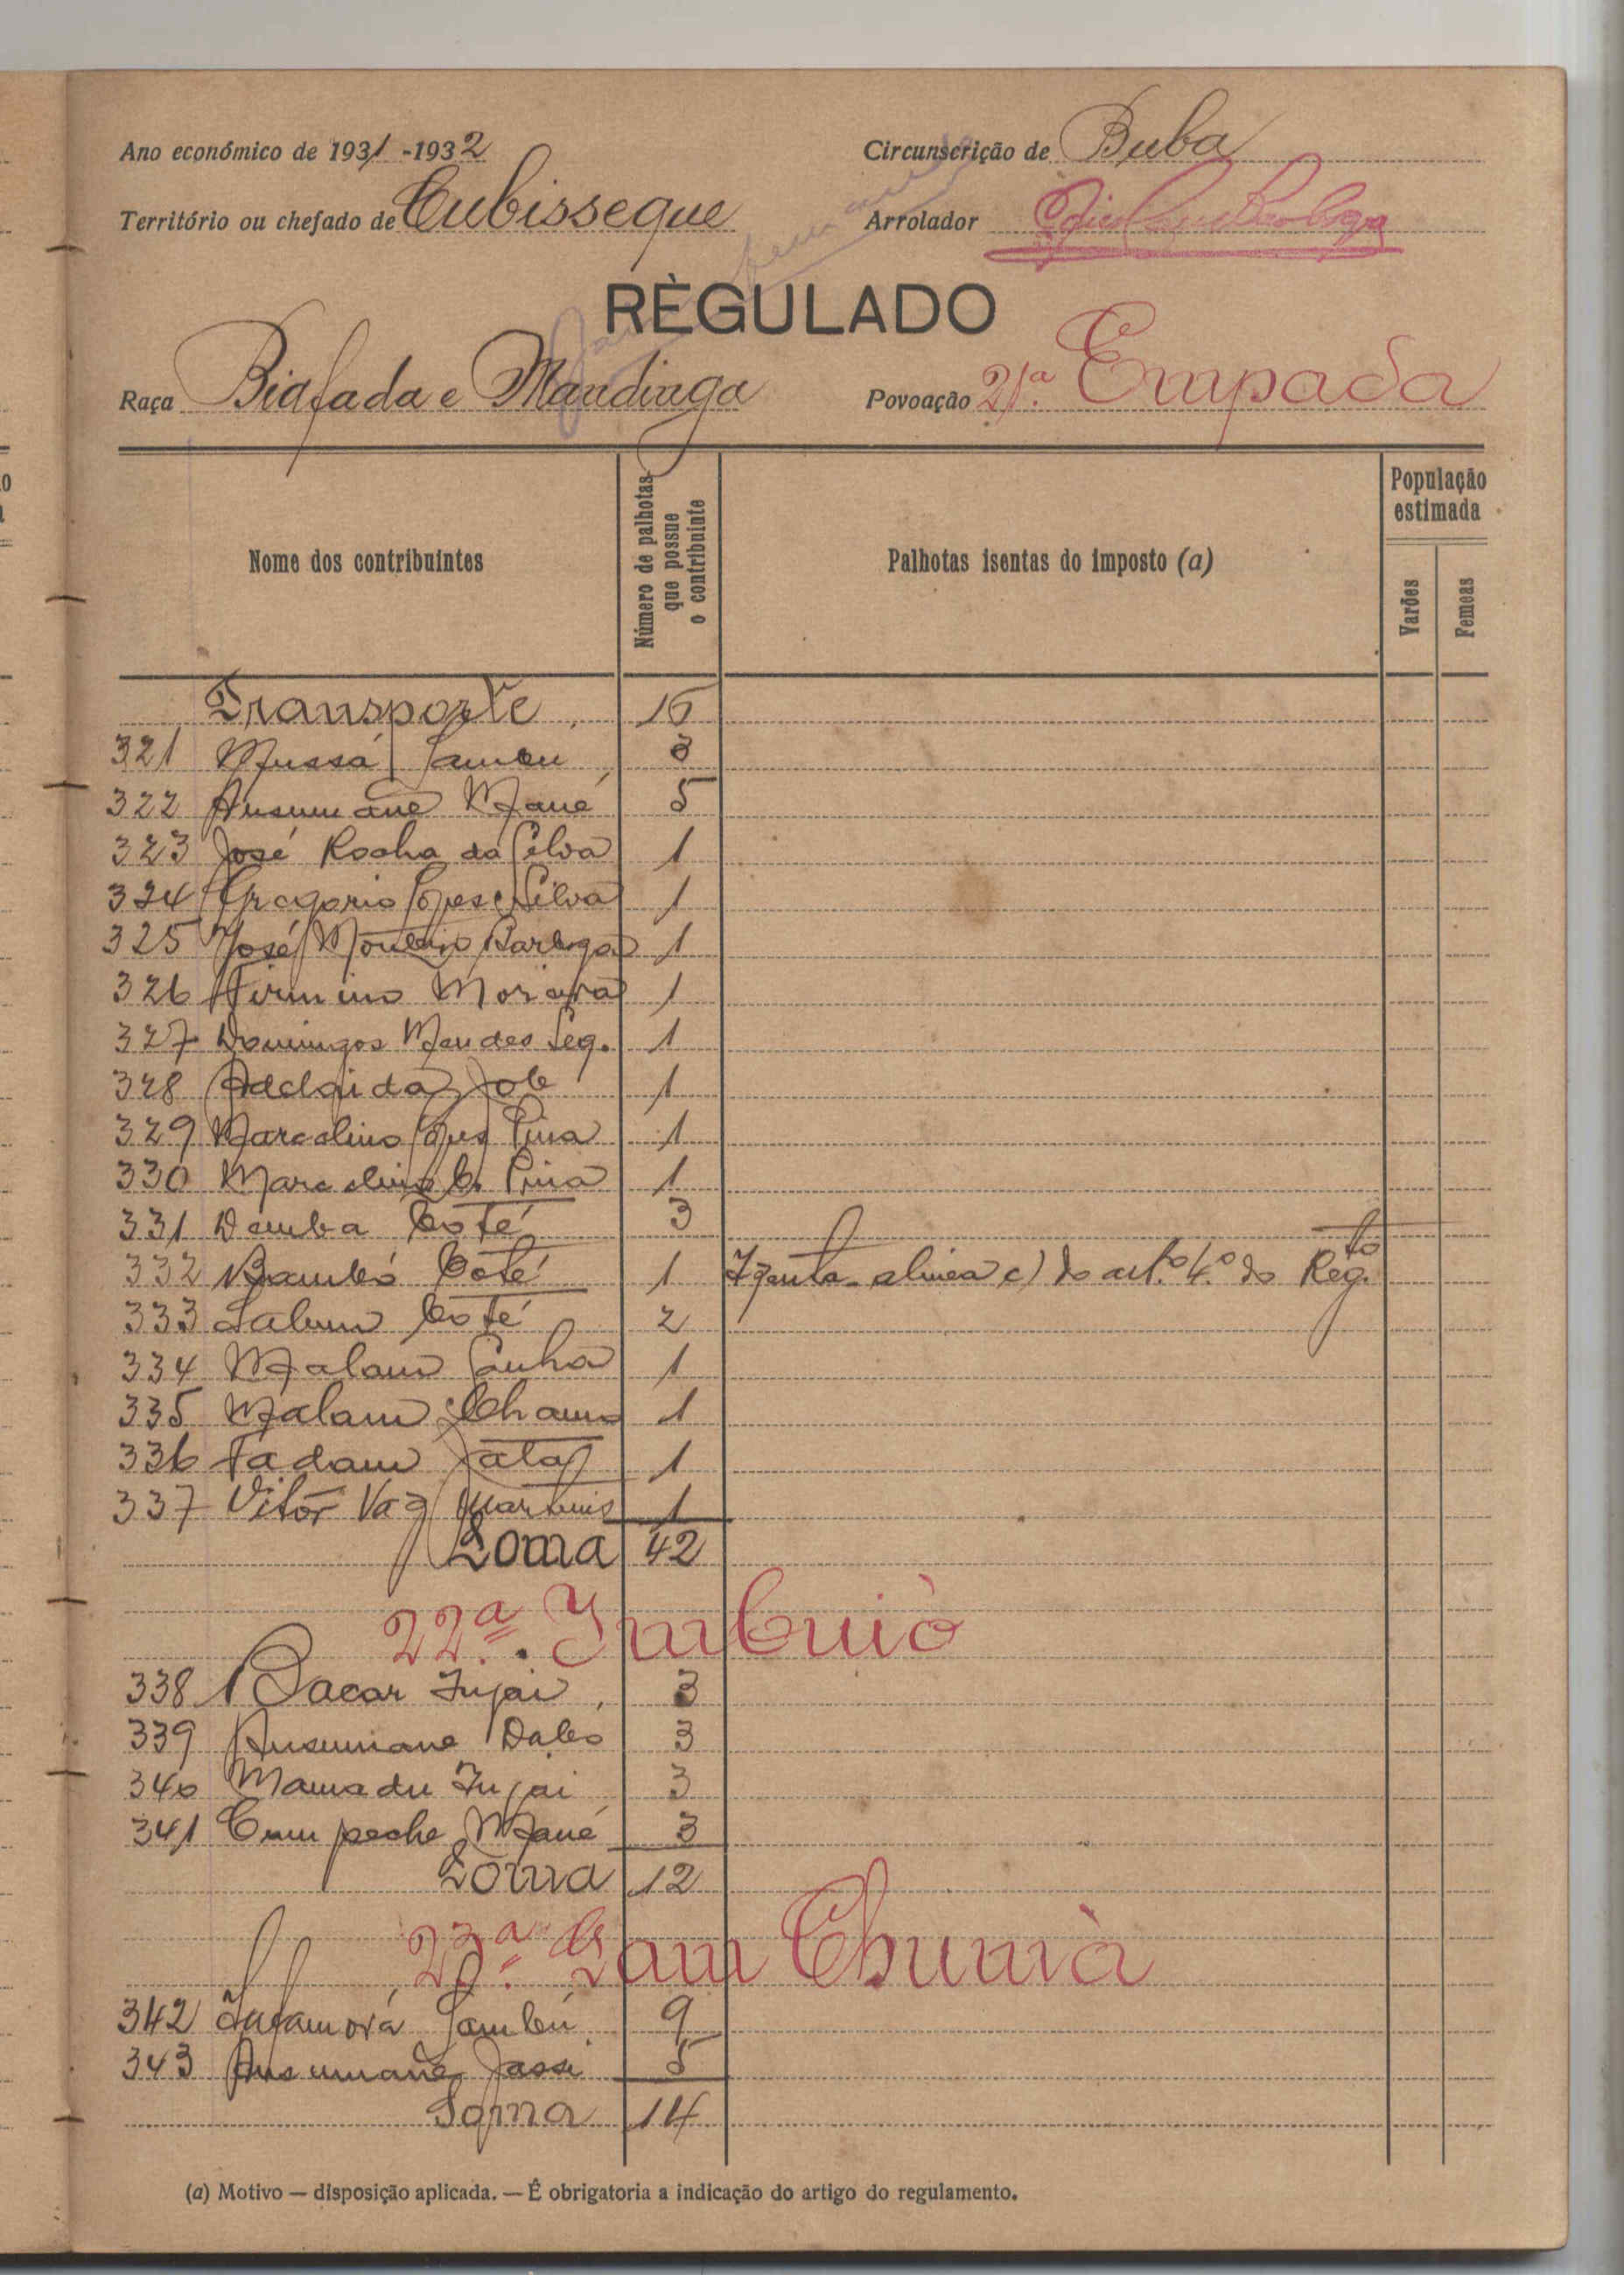 Ano económico de 1931-1932
Circunscrição de Buba
Território ou chefado de Cubisseque
Arrolador
RÈGULADO
Raça Biafada e Mandinga
Povoação 21.ª Empada
Nome dos contribuintes
Número de palhotas que possue o contribuinte
Palhotas isentas do imposto (a)
População estimada
Varões
Femeas
Transporte 16
321 Mussá 3
322 Ansumane Mané 5
323 José Rocha da Silva 1
324 Gregorio Lopes Silva 1
325 José Monteiro 1
326 Firmino Moreira 1
327 Domingos Mendes Seq. 1
328 Adelaida Job 1
329 Marcolino Lopes Pina 1
330 Marcolino C. Pina 1
331 Demba Coté 3
332 Bambó Coté 1 Izenta alinea c) do art.º 4.º do Reg.to
333 Coté 2
334 Malam Sanhá 1
335 Malam 1
336 Fadam 1
337 Vitôr Vaz Martins 1
Soma 42
22.ª Imbuiò
338 Bacar Injai 3
339 Ansumane Dabó 3
340 Mamadu Injai 3
341 Cumpeche Mané 3
Soma 12
23.ª Gam Chumà
342 9
343 Ansumane Jassi 5
Soma 14
(a) Motivo — disposição aplicada. — É obrigatoria a indicação do artigo do regulamento.